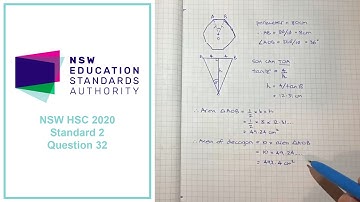 NSW
EDUCATION
STANDARDS
AUTHORITY
NSW HSC 2020
Standard 2
Question 32
A B
O
perimeter = 80cm
AB = 80/10 = 8cm
∠AOB = 360/10 = 36°
A 4 4 B
h
SOH CAH TOA
tan18° = 4/h
h = 4/tan18
= 12.31 cm
∴ Area △AOB = 1/2 × b × h
= 1/2 × 8 × 12.31
= 49.24 cm²
Area of decagon = 10 × Area △AOB
= 10 × 49.24...
= 492.4 cm²